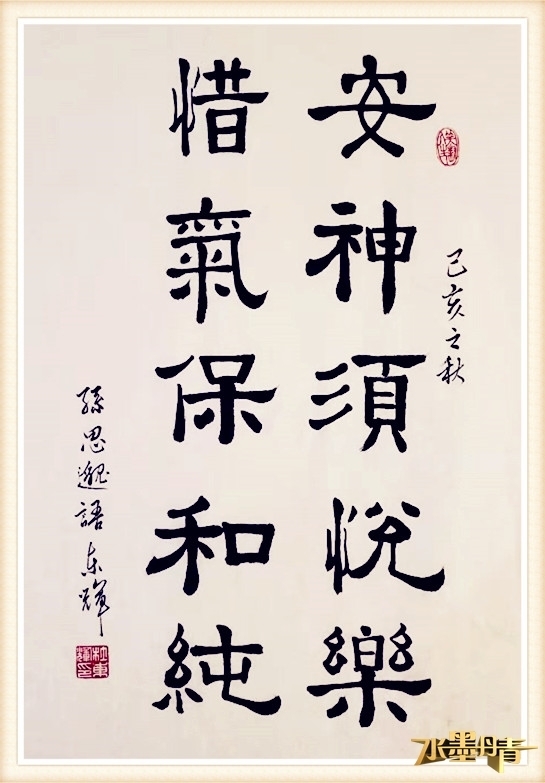 己亥之秋
安神須悅樂
惜氣保和純
孫思邈語 東輝
水墨丹青